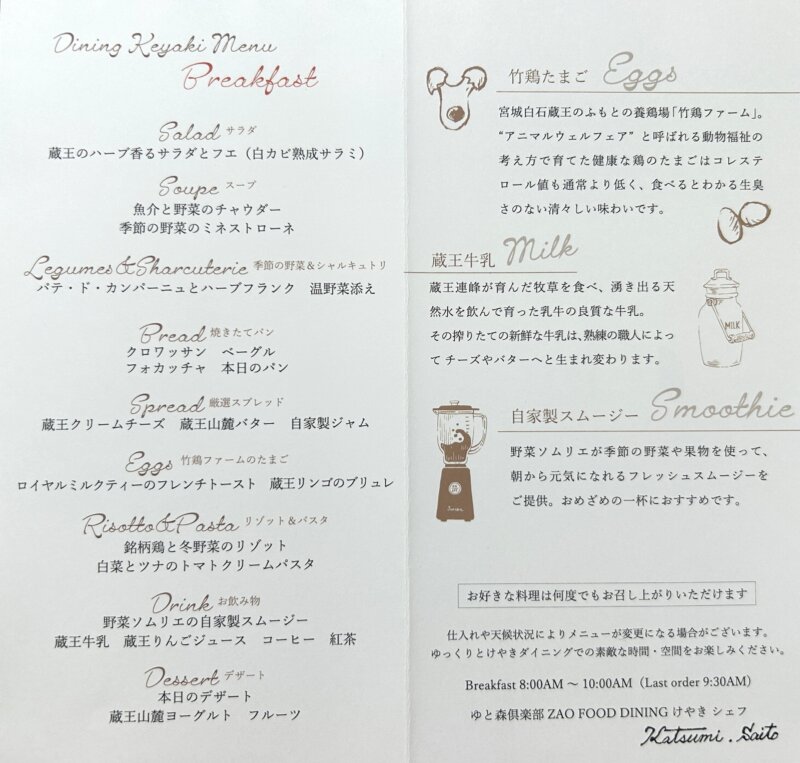 Dining Keyaki Menu
Breakfast
Salad サラダ
蔵王のハーブ香るサラダとフエ（白カビ熟成サラミ）
Soupe スープ
魚介と野菜のチャウダー
季節の野菜のミネストローネ
Legumes&Sharcuterie 季節の野菜＆シャルキュトリ
パテ・ド・カンパーニュとハーブフランク　温野菜添え
Bread 焼きたてパン
クロワッサン　ベーグル
フォカッチャ　本日のパン
Spread 厳選スプレッド
蔵王クリームチーズ　蔵王山麓バター　自家製ジャム
Eggs 竹鶏ファームのたまご
ロイヤルミルクティーのフレンチトースト　蔵王リンゴのブリュレ
Risotto&Pasta リゾット＆パスタ
銘柄鶏と冬野菜のリゾット
白菜とツナのトマトクリームパスタ
Drink お飲み物
野菜ソムリエの自家製スムージー
蔵王牛乳　蔵王りんごジュース　コーヒー　紅茶
Dessert デザート
本日のデザート
蔵王山麓ヨーグルト　フルーツ
竹鶏たまご Eggs
宮城白石蔵王のふもとの養鶏場「竹鶏ファーム」。
“アニマルウェルフェア” と呼ばれる動物福祉の
考え方で育てた健康な鶏のたまごはコレステ
ロール値も通常より低く、食べるとわかる生臭
さのない清々しい味わいです。
蔵王牛乳 Milk
蔵王連峰が育んだ牧草を食べ、湧き出る天
然水を飲んで育った乳牛の良質な牛乳。
その搾りたての新鮮な牛乳は、熟練の職人によっ
て チーズやバターへと生まれ変わります。
MILK
自家製スムージー Smoothie
野菜ソムリエが季節の野菜や果物を使って、
朝から元気になれるフレッシュスムージーを
ご提供。おめざめの一杯におすすめです。
お好きな料理は何度でもお召し上がりいただけます
仕入れや天候状況によりメニューが変更になる場合がございます。
ゆっくりとけやきダイニングでの素敵な時間・空間をお楽しみください。
Breakfast 8:00AM 〜 10:00AM（Last order 9:30AM）
ゆと森倶楽部 ZAO FOOD DINING けやき シェフ
Katsumi . Saito